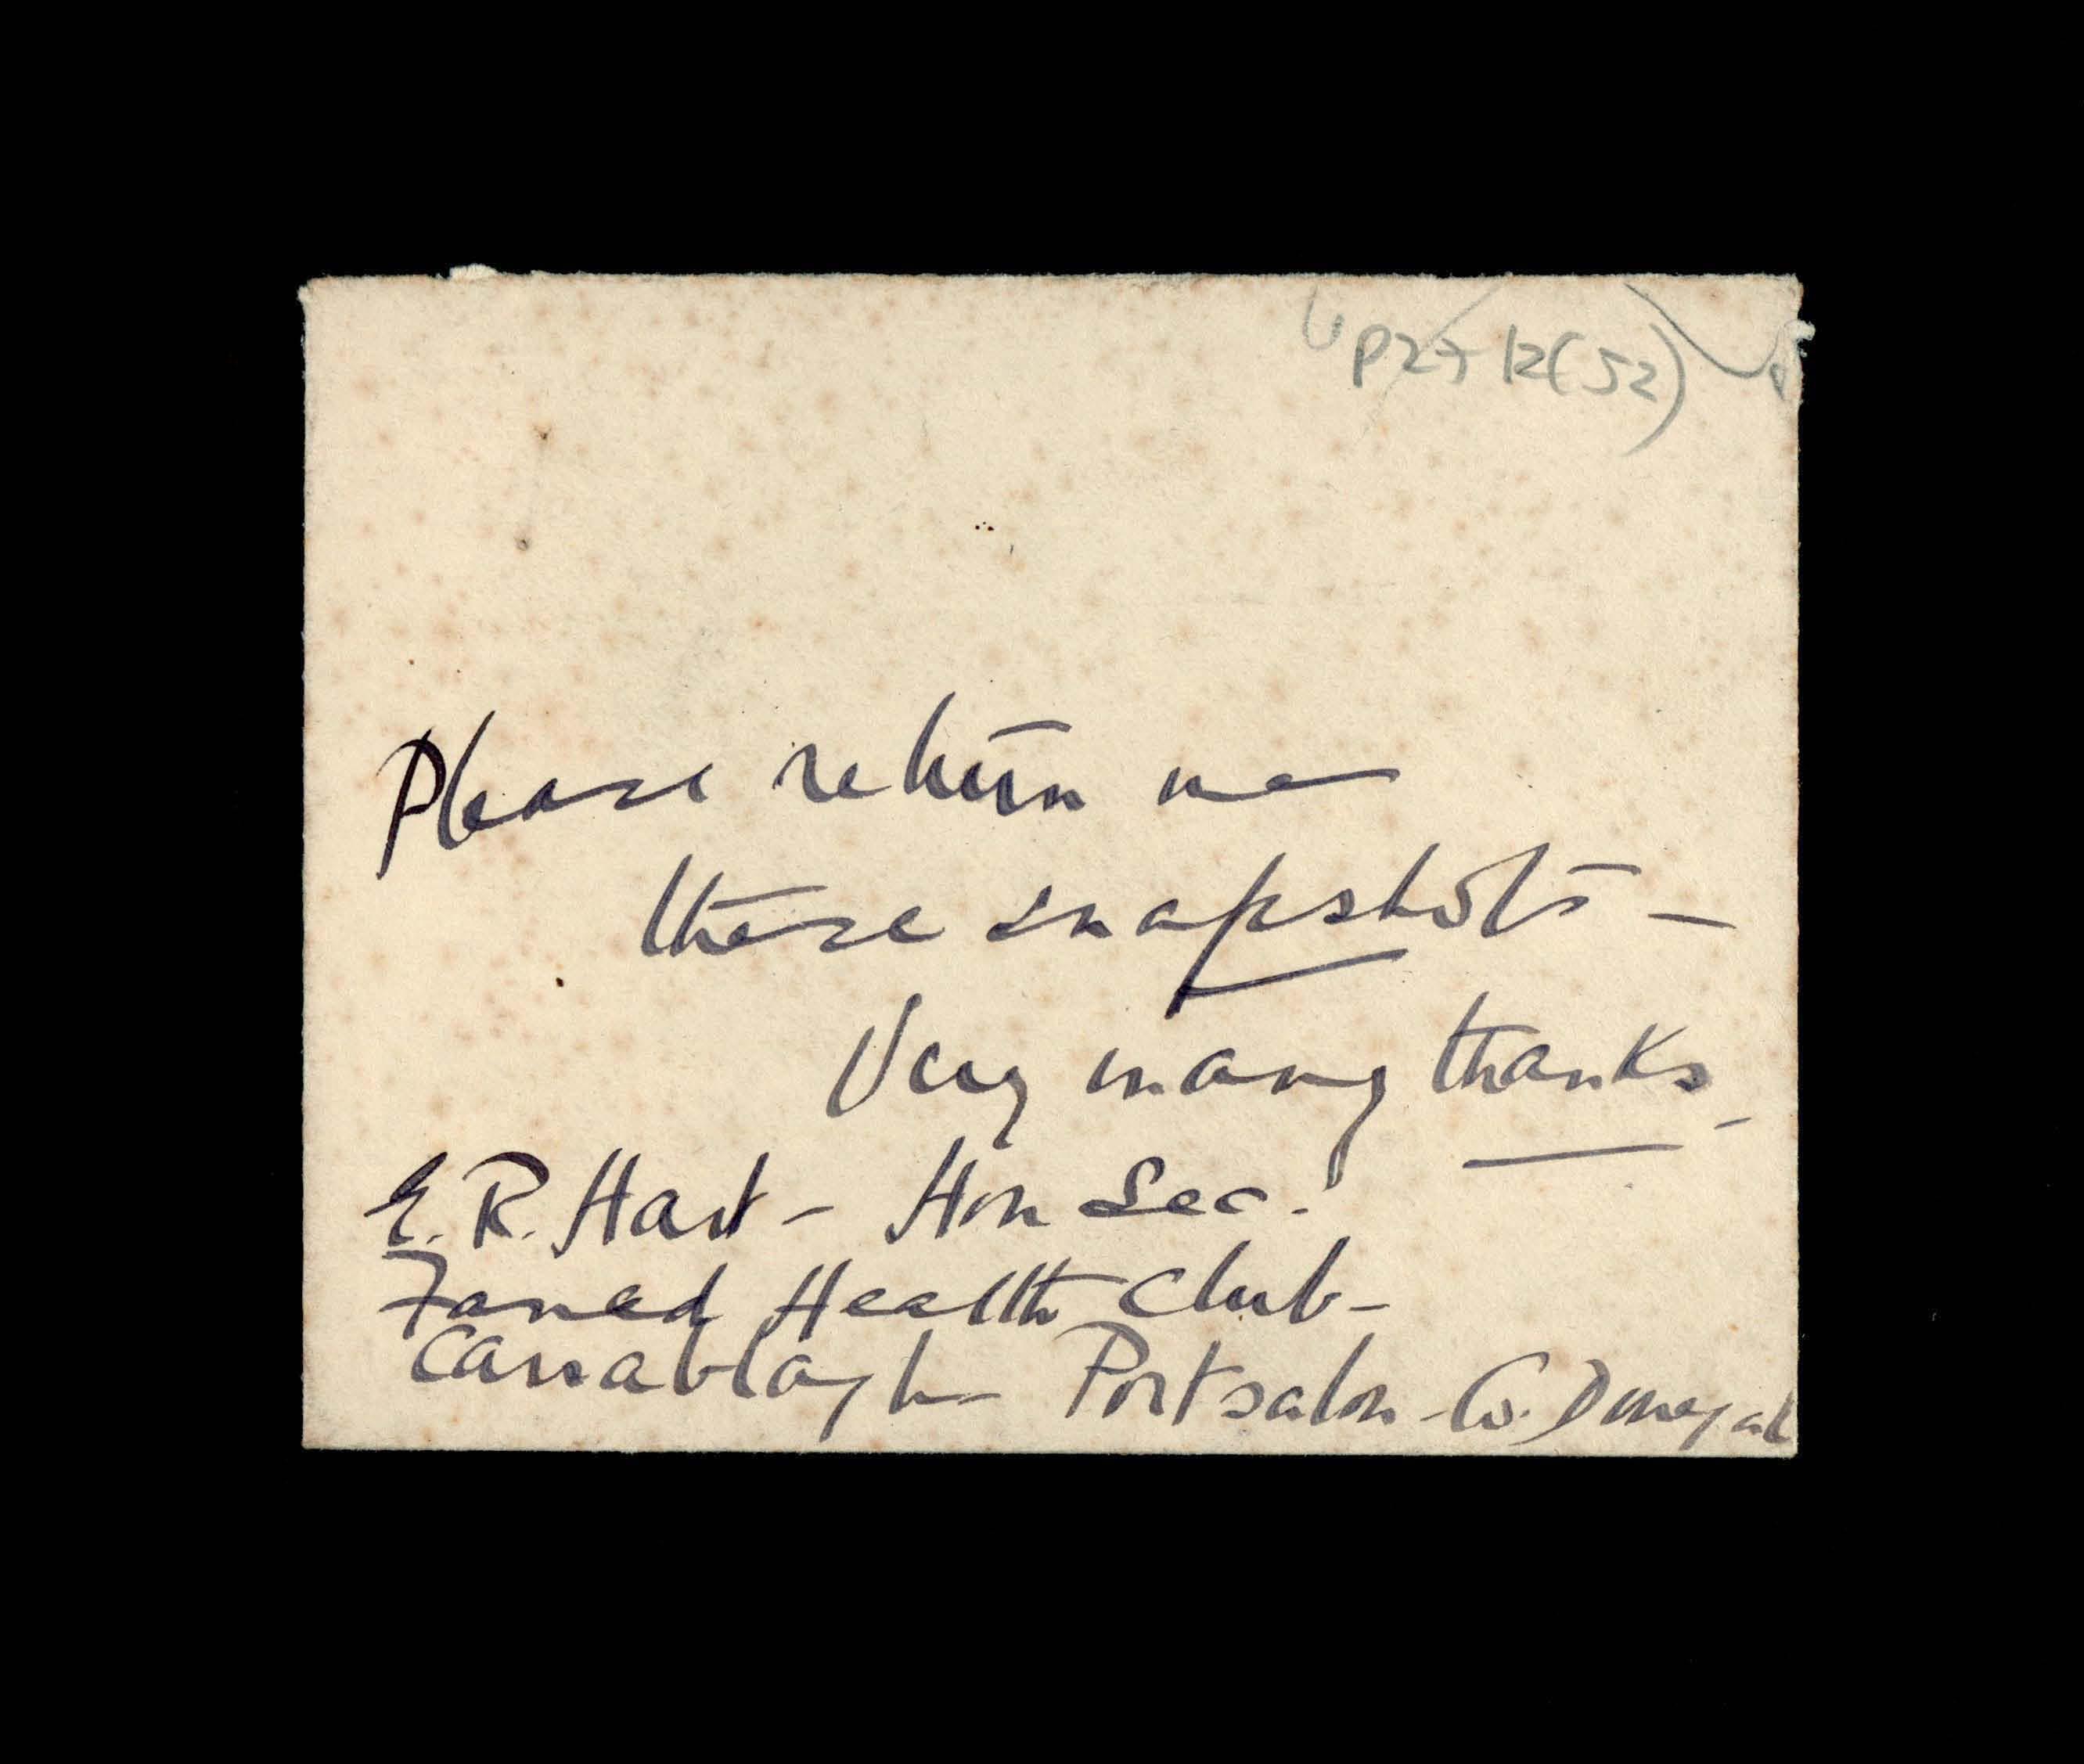 P27 12(52)
Please return me
these snapshots -
Very many thanks -
E. R. Hart - Hon Sec.
Faned Health Club -
Carrablagh - Portsalon - Co. Donegal